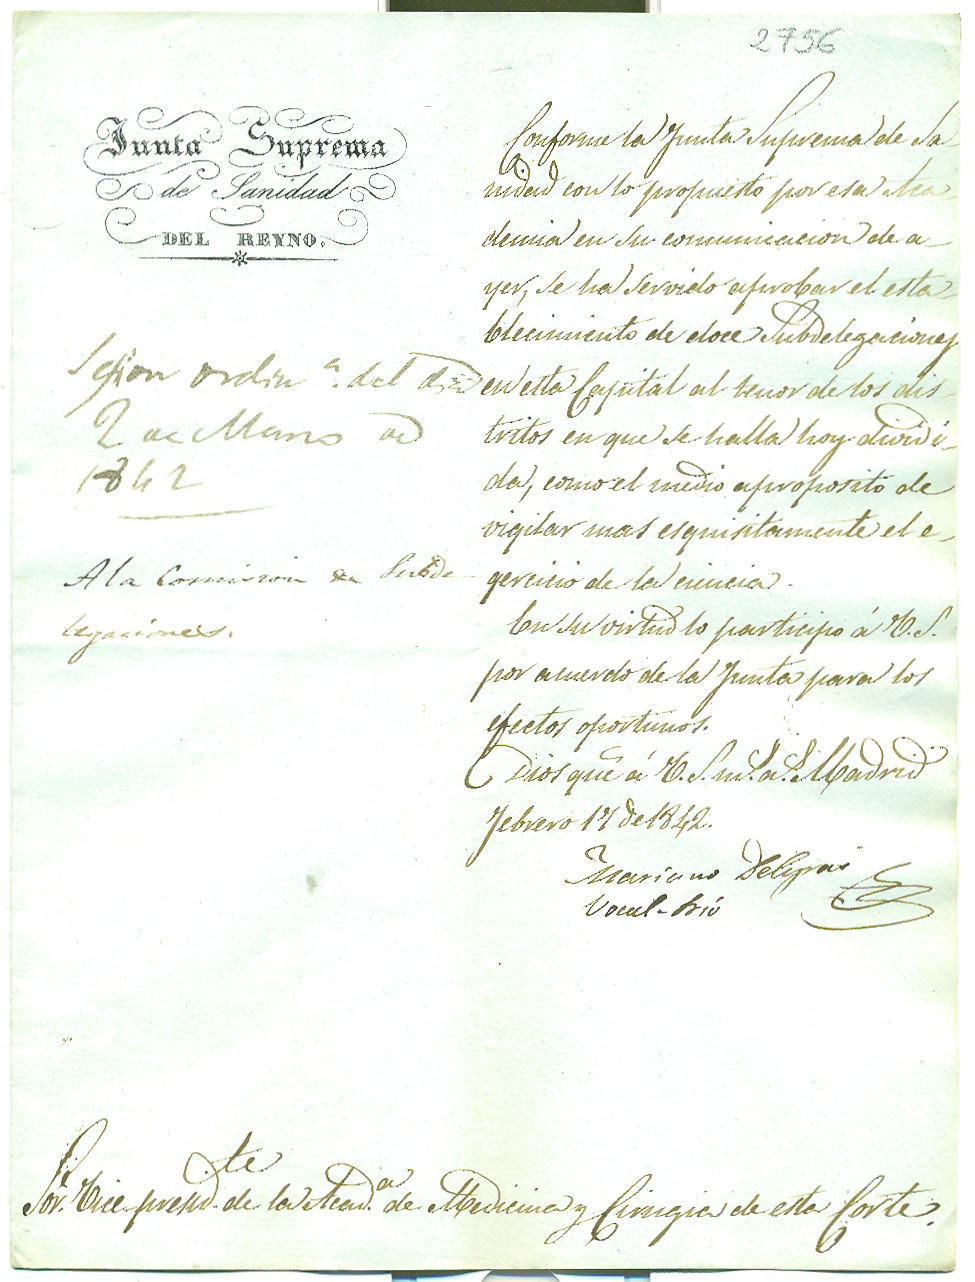 2756
Junta Suprema
de Sanidad
DEL REYNO.
Sesion ordin.ª del dia
2 de Marzo de
1842
A la Comision de Subde
legaciones.
Conforme la Junta Suprema de Sa-
nidad con lo propuesto por esa Aca-
demia en su comunicacion de a-
yer, se ha servido aprobar el esta-
blecimiento de doce Subdelegaciones
en esta Capital al tenor de los dis-
tritos en que se halla hoy dividi-
da, como el medio aproposito de
vigilar mas esquisitamente el e-
gercicio de la ciencia.
En su virtud lo participo á V. S.
por acuerdo de la Junta para los
efectos oportunos.
Dios gue á V. S. m.s a.s Madrid
Febrero 17 de 1842.
Mariano Delgrás
Vocal-Srio
Sor. Vice-presid.te de la Acad.a de Medicina y Cirugia de esta Corte.